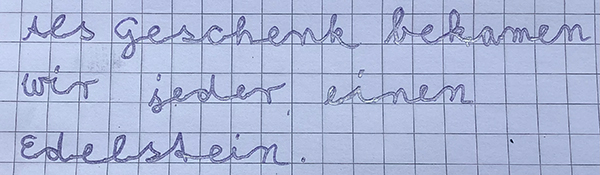 Als Geschenk bekamen
wir jeder einen
Edelstein.